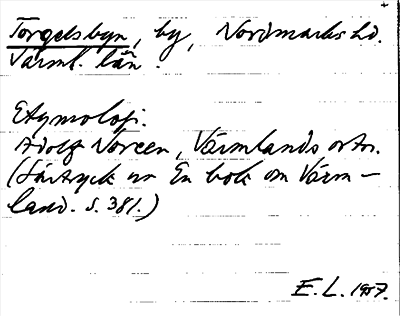 Torgelsbyn, by, Nordmarks hd.
Värml. län.
Etymologi.
Adolf Noreen, Värmlands ortn.
(Särtryck ur En bok om Värm-
land. S. 381.)
E. L. 1957.